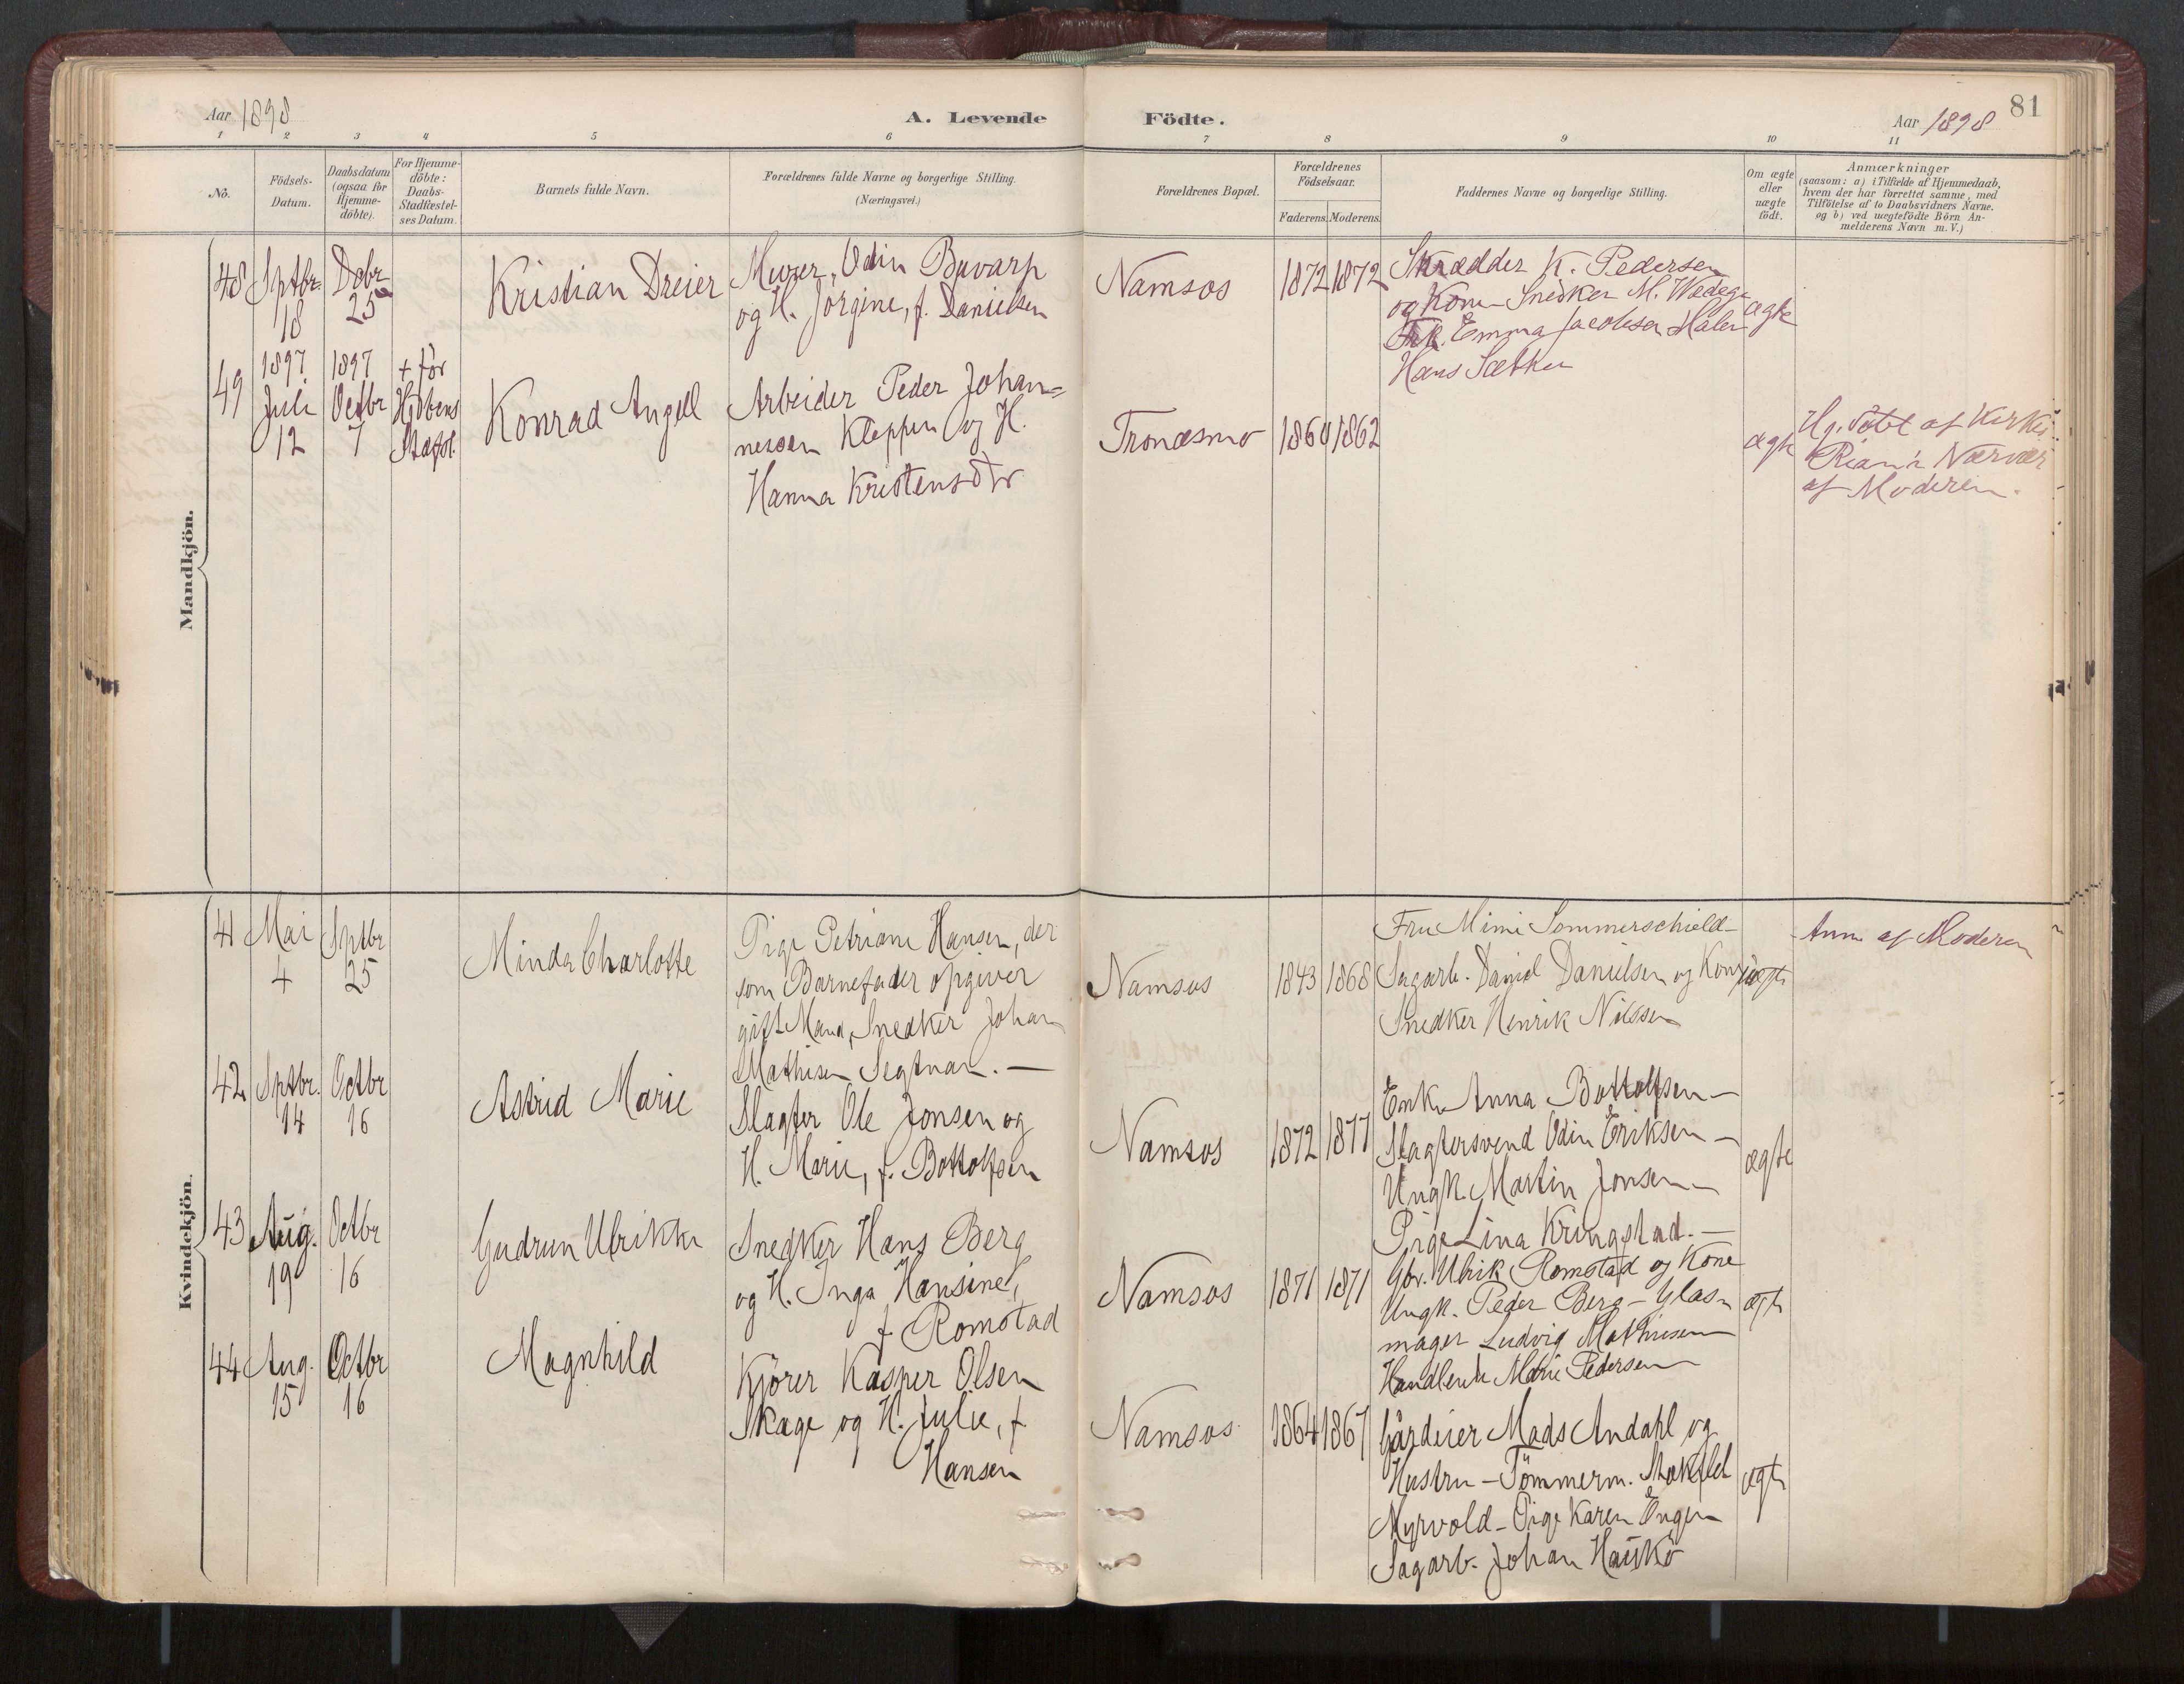 Aar 1898
A. Levende Födte.
Aar 1898
81
1 2 3 4 5 6 7 8 9 10 11
No.
Födsels-
Datum.
Daabsdatum
(ogsaa for
Hjemme-
döbte).
For Hjemme-
döbte:
Daabs-
Stadfæstel-
ses Datum.
Barnets fulde Navn.
Forældrenes fulde Navne og borgerlige Stilling.
(Næringsvei.)
Forældrenes Bopæl.
Forældrenes
Födselsaar.
Faderens. Moderens.
Faddernes Navne og borgerlige Stilling.
Om ægte
eller
uægte
födt.
Anmærkninger
(saasom: a) i Tilfælde af Hjemmedaab,
hvem der har forrettet samme, med
Tilföielse af to Daabsvidners Navne.
og b) ved uægtefödte Börn An-
melderens Navn m.V.)
Mandkjön.
48
Sptbr.
18
Dcbr
25
Kristian Dreier
Murer, Odin Buvarp
og H. Jörgine, f. Danielsen
Namsos
1872 1872
Skrædder K. Pedersen
og Kone Snedker M.
Frk. Emma Jacobsen Maler
Hans Sætker
ægte
49
1897
Juli
12
1897
Octbr
7
+ før
Hjdbens
Stafst.
Konrad Angell
Arbeider Peder Johan=
nessen Kleppen og H.
Hanna Kristensdtr
Tronæsmo
1860 1862
ægte
Hj. døbt af Kirkes.
Rian i Nærvær
af Moderen.
Kvindekjön.
41
Mai
4
Sptbr
25
Minda Charlotte
Pige Petriane Hansen, der
som Barnefader opgiver
gift Mand, Snedker Johan
Mathisen Segtnan. —
Namsos
1843 1868
Fru Mimi Sommerschield—
Sagarb. Daniel Danielsen og Kone
Snedker Henrik Nilssen
uægte
Anm af Moderen
42
Sptbr.
14
Octbr
16
Astrid Marie
Slagter Ole Jonsen og
H. Marie, f. Bottolfsen
Namsos
1872 1877
Enke Anna Bottolfsen—
Slagtersvend Odin Eriksen—
Ungk. Martin Jonsen—
Pige Lina Kringstad. —
ægte
43
Aug.
19
Octbr
16
Gudrun Ulrikke
Snedker Hans Berg
og H. Inga Hansine,
f. Romstad
Namsos
1871 1871
Gbr. Ulrik Romstad og Kone
Ungk. Peder Berg — Glas-
mager Ludvig Mathiesen
Handlende Marie Pedersen
ægte
44
Aug.
15
Octbr
16
Magnhild
Kjörer Kasper Olsen
Skage og H. Julie, f.
Hansen
Namsos
1864 1867
Gårdeier Mads Andahl og
Hustru — Tömmerm.
Myrvold — Pige Karen Engen
Sagarb. Johan Haukö
ægte